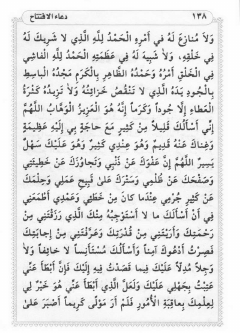 ١٣٨ دعاء الافتتاح
وَلَا مُنَازِعَ لَهُ فِي أَمْرِهِ الْحَمْدُ لِلَّهِ الَّذِي لَا شَرِيكَ لَهُ
فِي خَلْقِهِ، وَلَا شَبِيهَ لَهُ فِي عَظَمَتِهِ الْحَمْدُ لِلَّهِ الْفَاشِي
فِي الْخَلْقِ أَمْرُهُ وَحَمْدُهُ الظَّاهِرِ بِالْكَرَمِ مَجْدُهُ الْبَاسِطِ
بِالْجُودِ يَدَهُ الَّذِي لَا تَنْقُصُ خَزَائِنُهُ وَلَا تَزِيدُهُ كَثْرَةُ
الْعَطَاءِ إِلَّا جُوداً وَكَرَماً إِنَّهُ هُوَ الْعَزِيزُ الْوَهَّابُ اللَّهُمَّ
إِنِّي أَسْأَلُكَ قَلِيلاً مِنْ كَثِيرٍ مَعَ حَاجَةٍ بِي إِلَيْهِ عَظِيمَةٍ
وَغِنَاكَ عَنْهُ قَدِيمٌ وَهُوَ عِنْدِي كَثِيرٌ وَهُوَ عَلَيْكَ سَهْلٌ
يَسِيرٌ اللَّهُمَّ إِنَّ عَفْوَكَ عَنْ ذَنْبِي وَتَجَاوُزَكَ عَنْ خَطِيئَتِي
وَصَفْحَكَ عَنْ ظُلْمِي وَسَتْرَكَ عَلَى قَبِيحِ عَمَلِي وَحِلْمَكَ
عَنْ كَثِيرِ جُرْمِي عِنْدَمَا كَانَ مِنْ خَطَئِي وَعَمْدِي أَطْمَعَنِي
فِي أَنْ أَسْأَلَكَ مَا لَا أَسْتَوْجِبُهُ مِنْكَ الَّذِي رَزَقْتَنِي مِنْ
رَحْمَتِكَ وَأَرَيْتَنِي مِنْ قُدْرَتِكَ وَعَرَّفْتَنِي مِنْ إِجَابَتِكَ
فَصِرْتُ أَدْعُوكَ آمِناً وَأَسْأَلُكَ مُسْتَأْنِساً لَا خَائِفاً وَلَا
وَجِلاً مُدِلّاً عَلَيْكَ فِيمَا قَصَدْتُ فِيهِ إِلَيْكَ فَإِنْ أَبْطَأَ عَنِّي
عَتَبْتُ بِجَهْلِي عَلَيْكَ وَلَعَلَّ الَّذِي أَبْطَأَ عَنِّي هُوَ خَيْرٌ لِي
لِعِلْمِكَ بِعَاقِبَةِ الْأُمُورِ فَلَمْ أَرَ مَوْلًى كَرِيماً أَصْبَرَ عَلَى